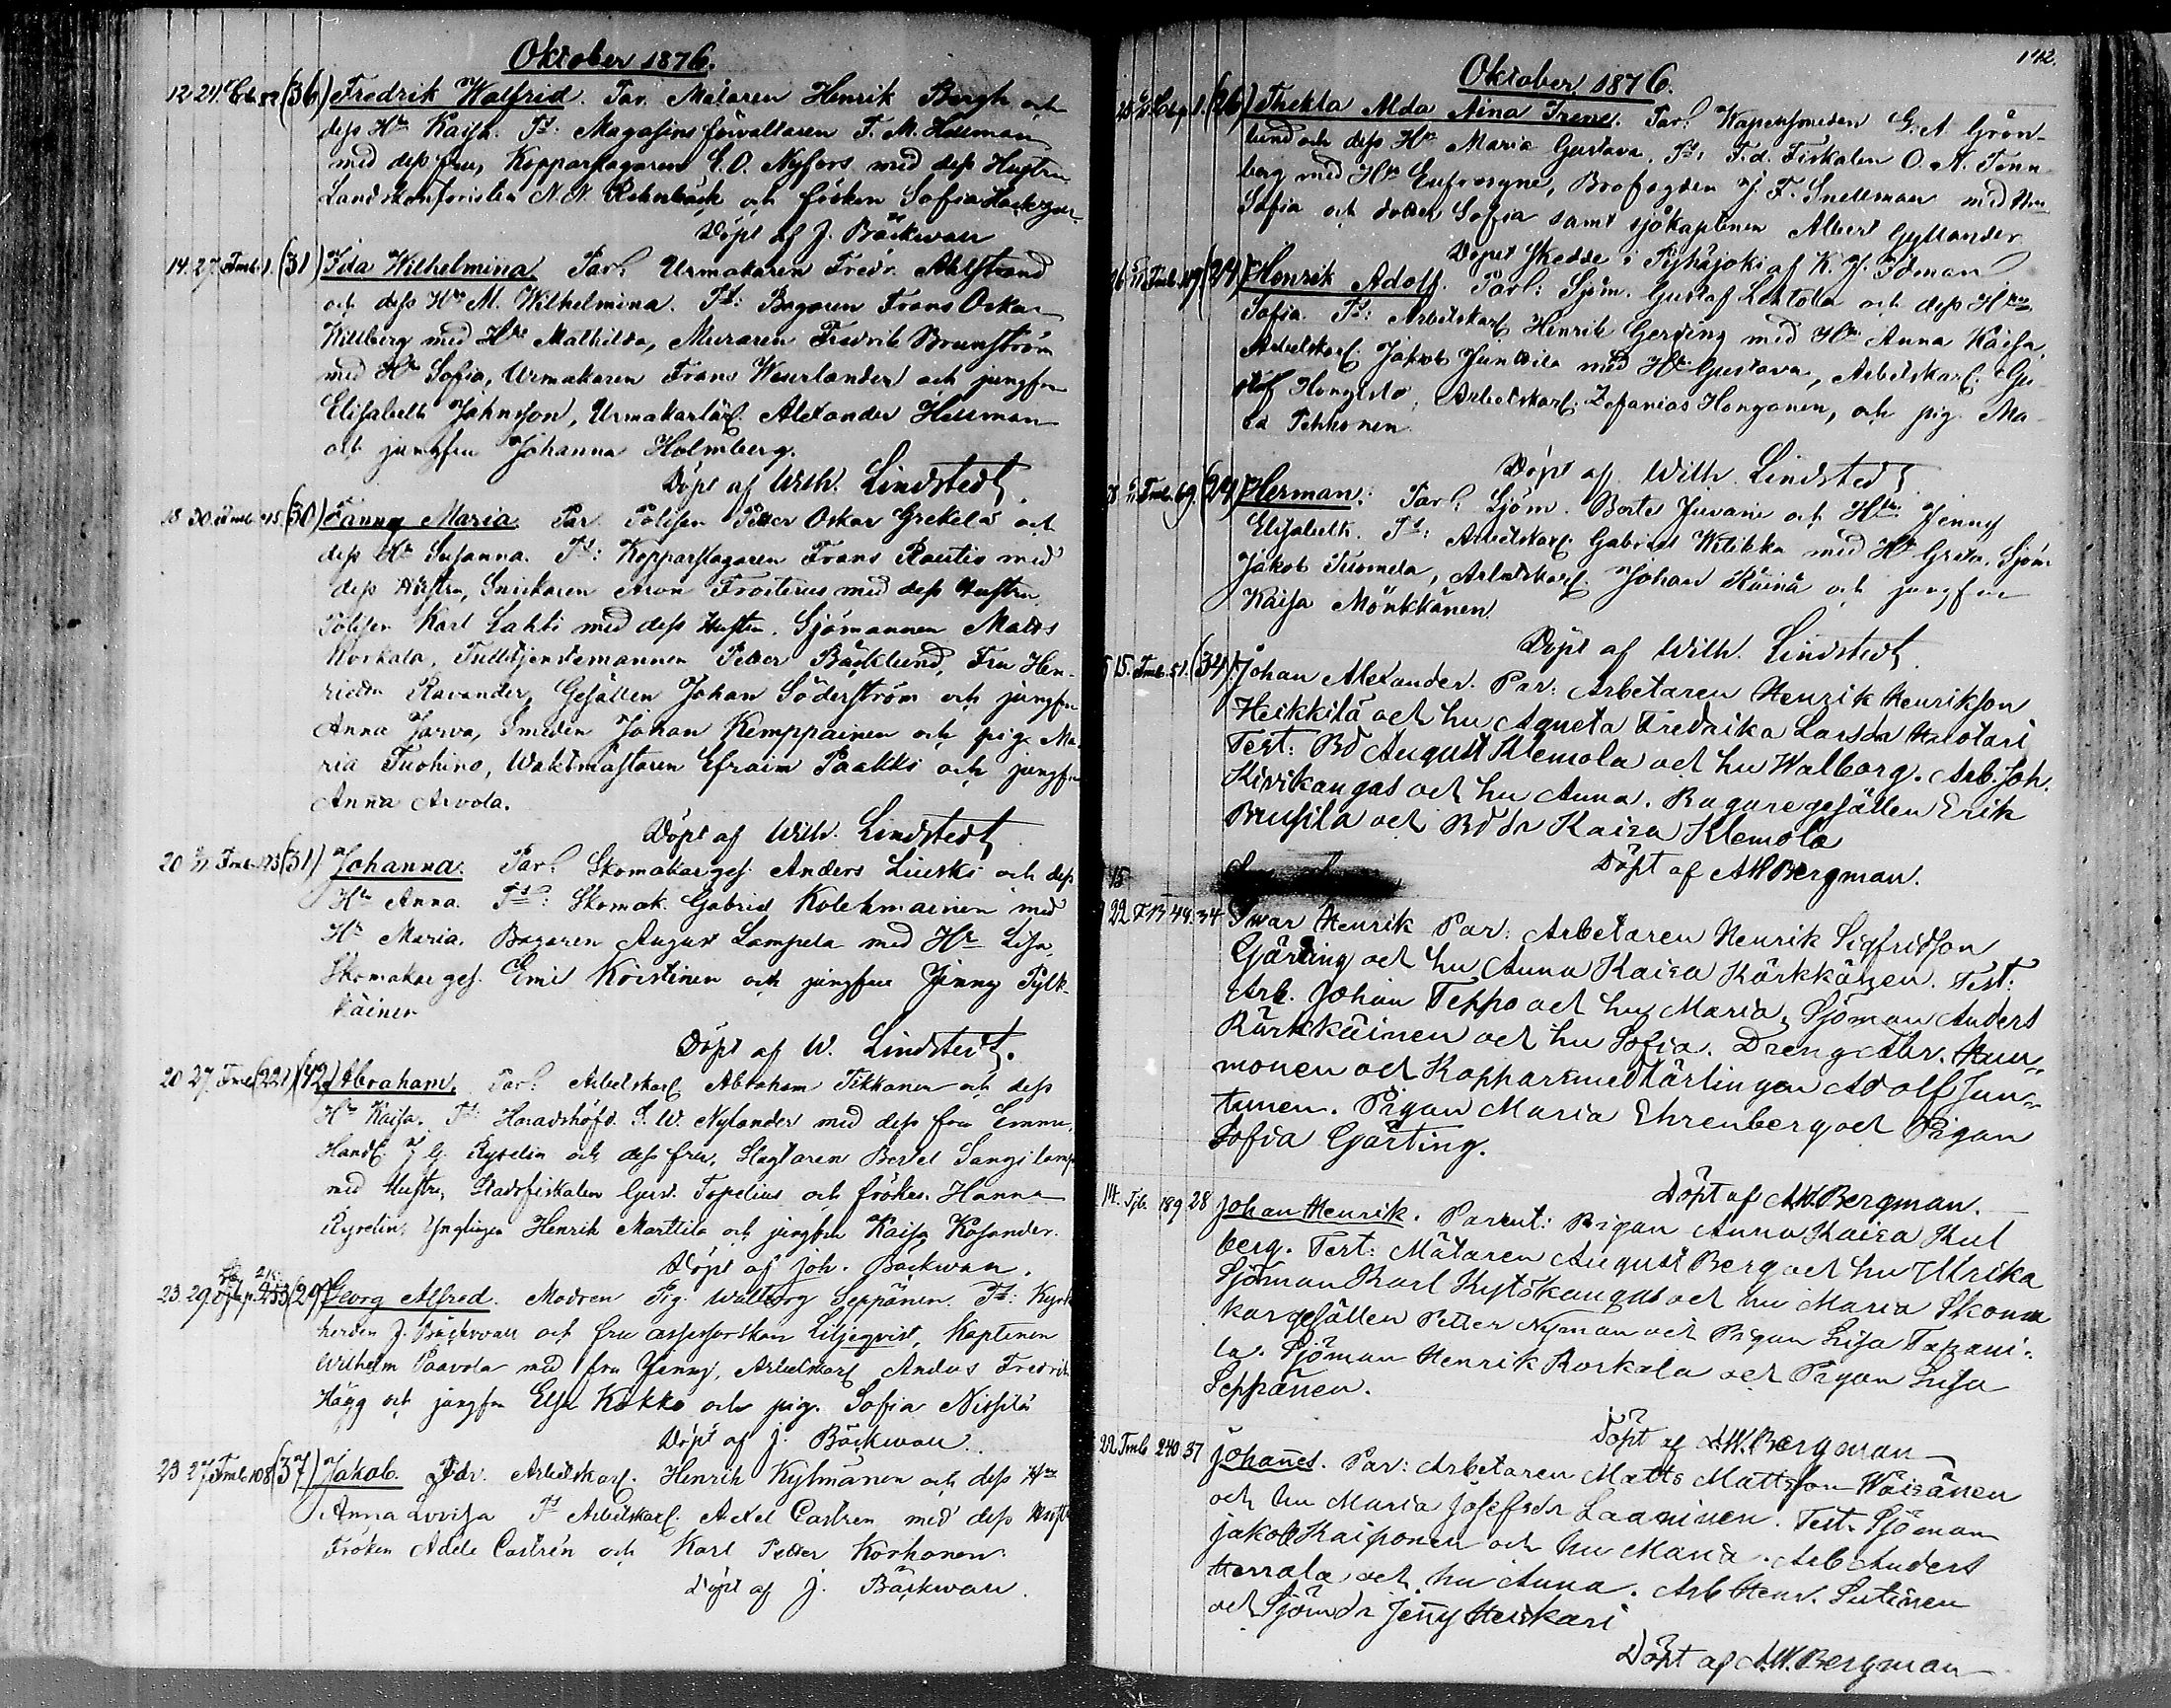 Oktober 1876.
12 24. (36) Fredrik Walfrid. Par. Mätaren Henrik Bergh och
dess Hu Kaisa. Ts: Magasins förvaltaren F. M. Hellman
med dess fru, Kopparslagaren E. O. Nyfors med dess Hustru
Landskontoristen N. N. och fröken Sofia
Döpt af J. Bäckwall
14. 27. Tmb. 1. (31) Ida Wilhelmina. Par: Urmakaren Fredr. Ahlstrand
och dess Hu M. Wilhelmina. Ts: Bagaren Frans Oskar
Willberg med Hu Mathilda, Muraren Fredrik Brunström
med Hu Sofia, Urmakaren Frans Weurlander och jungfru
Elisabeth Johnsson, Urmakarlär. Alexander Hellman
och jungfru Johanna Holmberg.
Döpt af Wilh. Lindstedt
18 30. (30) Fanny Maria. Par. Polisen Petter Oskar Grekelä och
dess Hu Susanna. Ts: Kopparslagaren Frans Rautio med
dess Hustru, Snickaren Aron Frosterus med dess Hustru
Polisen Karl Lahti med dess Hustru. Sjömannen Matts
Korkala, Tulltjenstemannen Petter Bäcklund, Fru Hen-
Ravander, Gesällen Johan Söderström och jungfru
Anna Jarva, Smeden Johan Kemppainen och pig. Ma-
ria Tuohino, Waktmästaren Efraim Paakki och jungfru
Anna Arvola.
Döpt af Wilh. Lindstedt
20 Tmb. 123 (31) Johanna. Par: Skomakarges. Anders Liuski och dess
Hu Anna. Ts: Skomak. Gabriel Kolehmainen med
Hu Maria. Bagaren August Lampela med Hu Lisa,
Skomakarges. Emil Koistinen och jungfru Jinny Pylk-
käinen
Döpt af W. Lindstedt.
20 27. Tmb (221) (42) Abraham. Par: Arbetskarl Abraham Tikkanen och dess
Hu Kaisa. Ts: Häradshöfd. S. W. Nylander med dess fru Emma,
Handl. J. G. Ryselin och dess fru, Slagtaren Bertel Sangi
med Hustru, Stadsfiskalen Gust. Topelius och fröken Hanna
Ryselin. Ynglingen Henrik Marttila och jungfru Kaisa Kosander.
Döpt af Joh. Bäckwall.
23. 29. 215 253 (29) Georg Alfred. Modren Pig. Walborg Seppänen. Ts: Kyrk-
herden J. Bäckwall och fru assessorskan Liljeqvist, Kaptenen
Wilhelm Paavola med fru Jenny, Arbetskarl Anders Fredrik
Hägg och jungfru Elsa Kokko och pig. Sofia Nissilä
Döpt af J. Bäckwall.
23 27. Tmb. 108 (37) Jakob. Par. Arbetskarl. Henrik Kylmänen och dess Hu
Anna Lovisa Ts Arbetskarl. Axel Castren med dess Hustru
Fröken Adele Castrén och Karl Petter Korhonen.
Döpt af J. Bäckwall.
142.
Oktober 1876.
25 (26) Thekla Alda Aina Irene. Par: Wapensmeden G. A. Grön-
lund och dess Hu Maria Gustava. Ts: F.d. Fiskalen O. A. Tenn-
berg med Hu Eufrosyne, Brofogden J. F. Snellman med Hu
Sofia och dotter Sofia samt sjökaptenen Albert Gyllander
Döpet skedde i Pyhäjoki af K. J. Idman
26 Tmb. 119. (24) Henrik Adolf. Par: Sjöm. Gustaf Lehtola och dess Hu
Sofia. Ts: Arbetskarl Henrik Gerding med Hu Anna Kaisa,
Arbetskarl. Jakob Junttila med Hu Gustava, Arbetskarl. Gu-
staf Hongisto, Arbetskarl. Zefanias Honganen, och pig. Ma-
ria Pehkonen.
Döpt af Wilh. Lindstedt
28 Tmb. 69. (24) Herman. Par: Sjöm. Bertel Juvani och Hu Jenny
Elisabeth. Ts: Arbetskarl Gabriel Witikka med Hu Greta. Sjöm.
Jakob Tuomela, Arbetskarl. Johan Räinä och jungfru
Kaisa Mönkkönen.
Döpt af Wilh. Lindstedt
15. Tmb. 51. (34) Johan Alexander. Par: Arbetaren Henrik Henriksson
Heikkilä och hu Agneta Fredrika Larsdr Halotari
Test: Bd August Klemola och hu Walborg. Arb. Joh.
Kivikangas och hu Anna. Bagaregesällen Erik
Brusila och Bd dr Kaisa Klemola
Döpt af AWBergman.
15
22 TB 48. 34 Iwar Henrik Par: Arbetaren Henrik Sigfridson
Gärting och hu Anna Kaisa Kärkkäinen. Test:
Arb. Johan Teppo och hu Maria, Sjöman Anders
Kärkkäinen och hu Sofia. Dreng Abr. Ham-
monen och Kopparsmedlärlingen Adolf Jun-
tunen. Pigan Maria Ehrenberg och Pigan
Sofia Gjärting.
Döpt af AWBergman.
14. Tjb. 189 28 Johan Henrik. Parent: Pigan Anna Kaisa Kul
berg. Test: Mätaren August Berg och hu Ulrika
Sjöman Karl Kytökangas och hu Maria Skoma
kargesällen Petter Nyman och Pigan Lisa Tapani-
la. Sjöman Henrik Korkala och Pigan Lisa
Seppänen.
Döpt af AW.Bergman
22 Tmb 240 37 Johanes. Par: Arbetaren Matts Mattsson Wäisänen
och hu Maria Josefsdr Laaninen. Test. Sjöman
Jakob Kaiponen och hu Maria. Arb Anders
Herrala och hu Anna. Arb Henr. Sutinen
och Sjömdr Jeny Heiskari
Döpt af A.W.Bergman